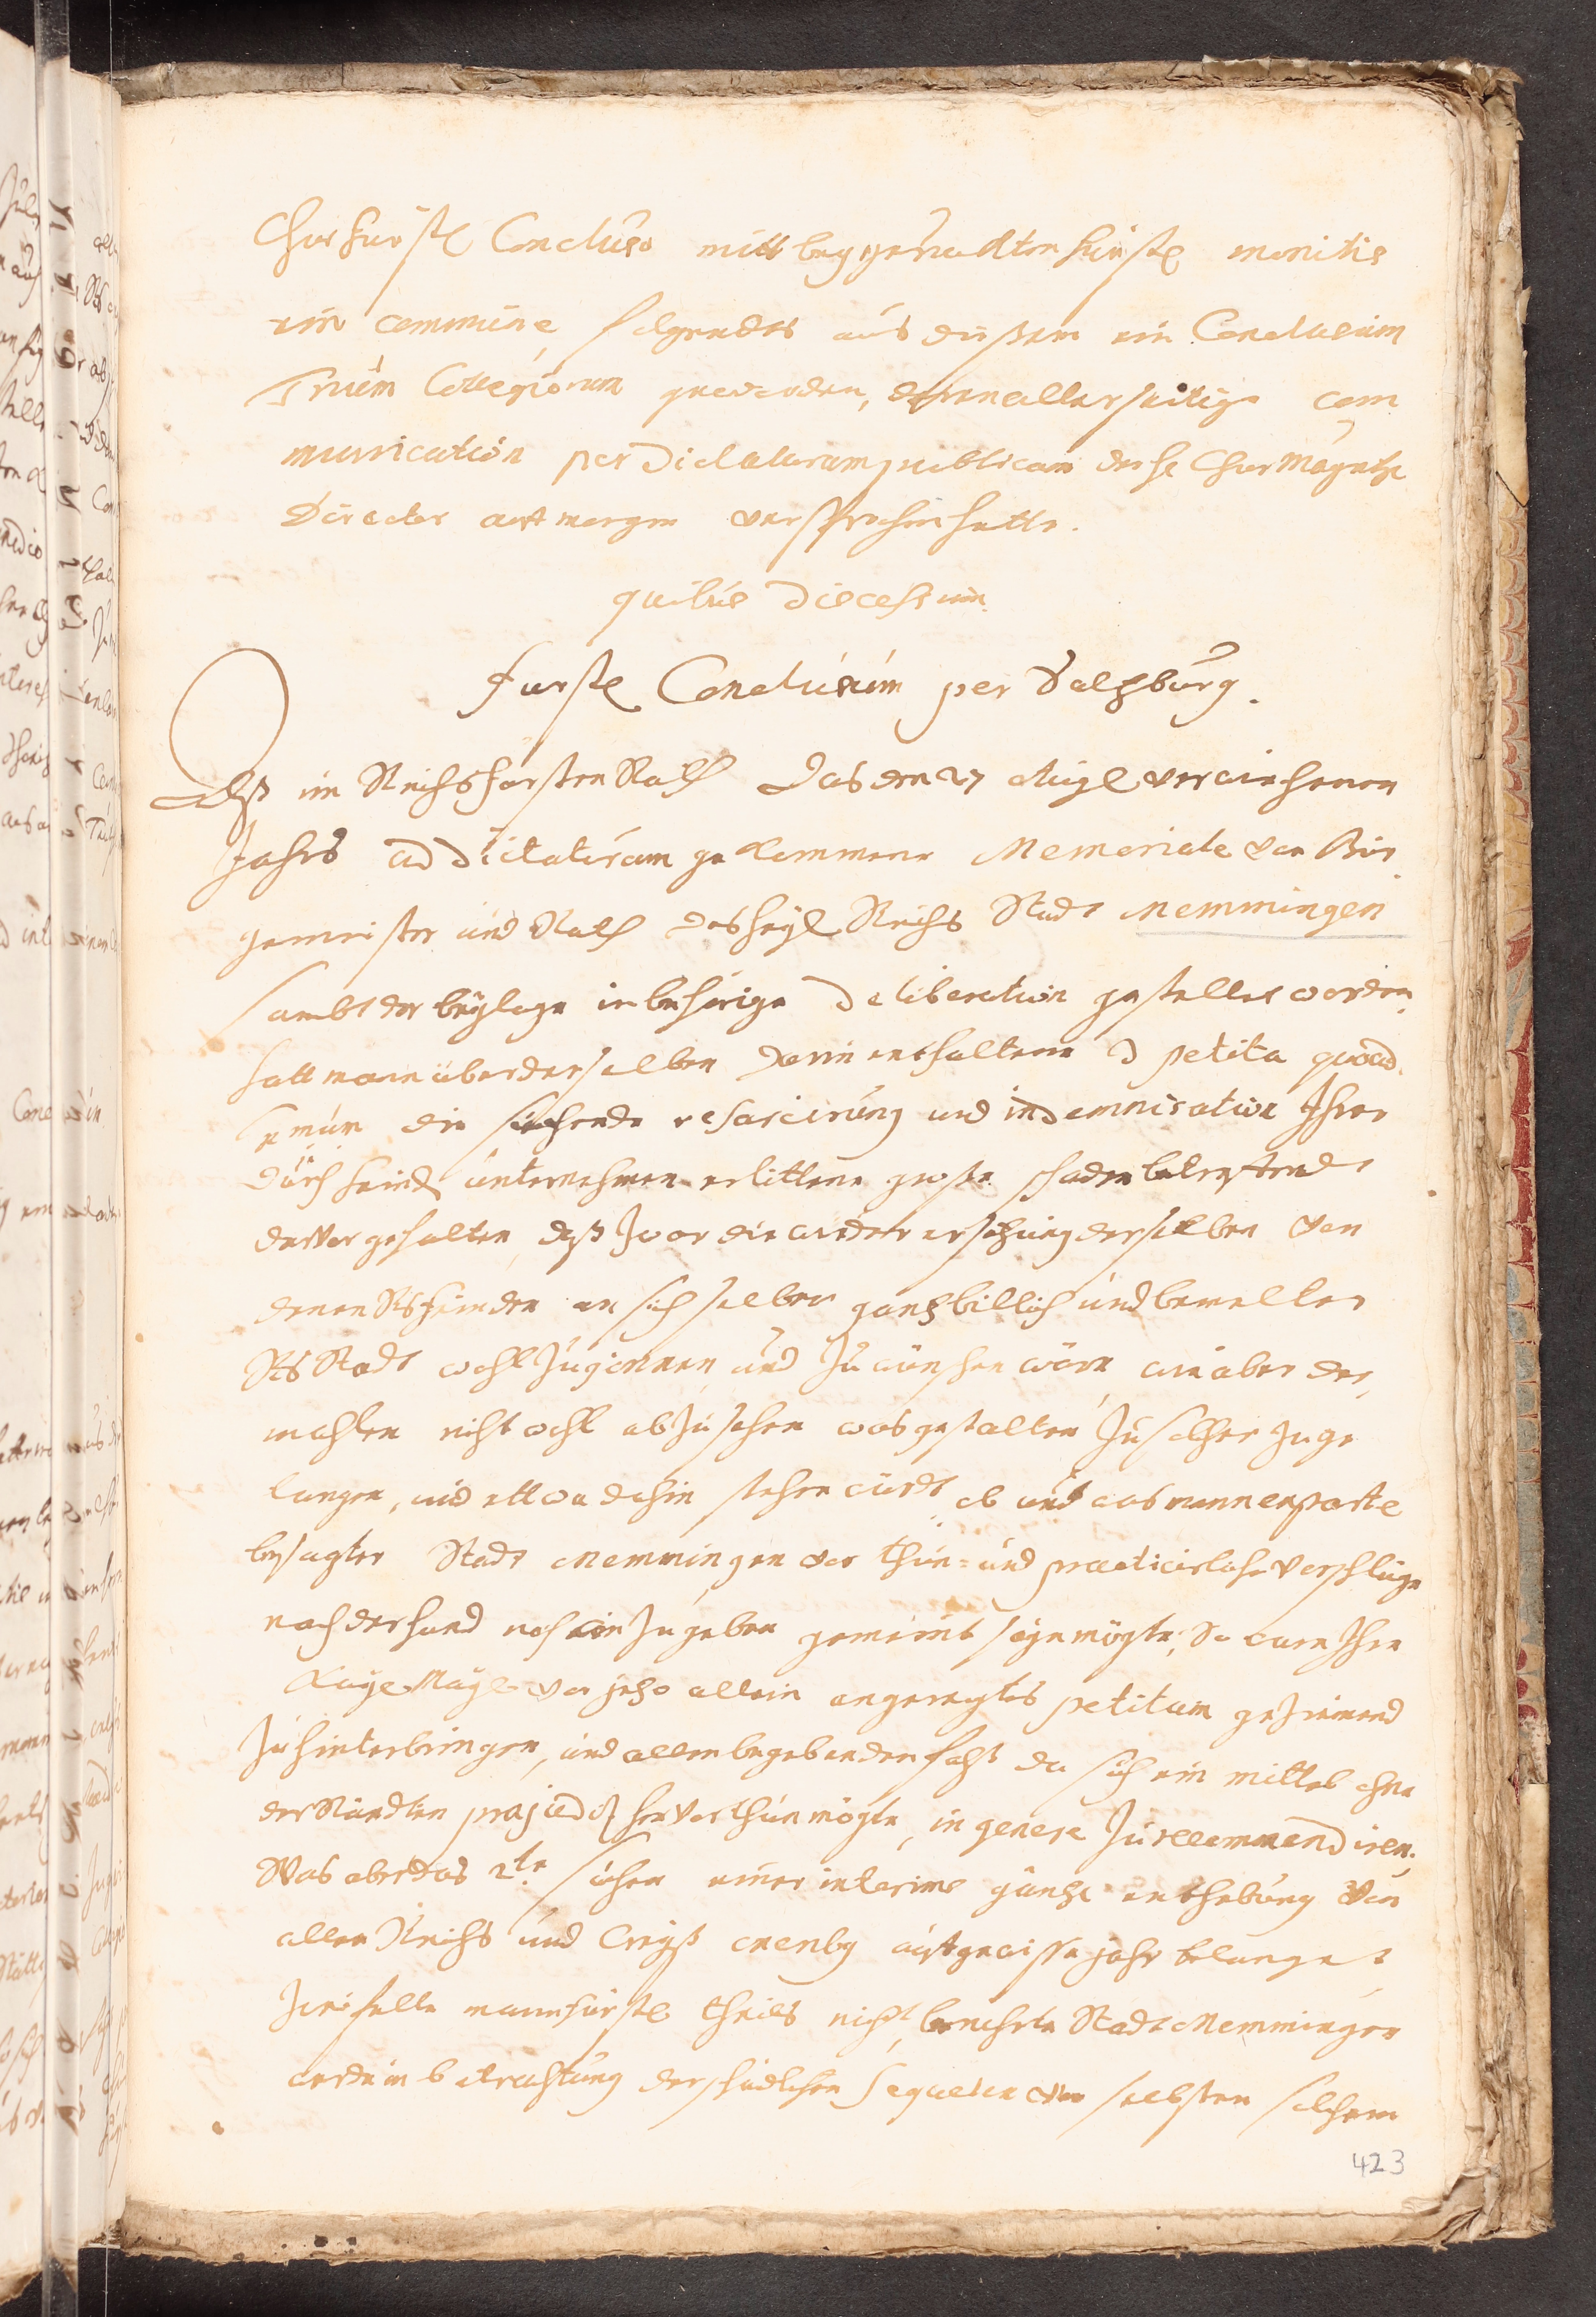 ChurFürstl Concluso mitt beygeruckten fürstl monitis
ein commune folgendts aus dießem ein Conclusum
Trium Collegiorum geworden, deren allerseitige com
munication per Dictaturam publicam der h Chur Mayntz
Director auf morgen versprochen hatte.
quibus Discessum.
Fürstl Conclusum per Saltzburg.
Alß im ReichsfürstenRath das den 27 Aug verwichenen
Jahrs ad dictaturam gekommene Memoriale von Bür
germeister und Rath des heyl Reichs Stadt Memmingen
sambt der beylage in behörige Deliberation gestellet worden,
hatt mann über derselben darin enthaltene petita quoad
1mum die suchende resarcirung und indemnisation Ihrer
durch feindl unternehmen erlittene große schaden betreffend
dafür gehalten, daß zwar die widerersetzung derselben von
denen Rsfeinden an sich selber gantz billich und bemelter
Rs Stadt wohl zu gönnen und zu wünschen wäre, wie aber der,
mahlen nicht wohl abzusehen was gestalten zu solcher zu ge
langen, und ettwa dahin stehen würdt, ob und was mann ex parte
besagter Stadt Memmingen vor thun= und practicirliche Vorschläge
nach der hand noch ein zu geben gemeint seyn mögte; So wäre Ihre
Kayl. Mayl. vor jetzo allein angeregtes petitum geziemend
zu hinterbringen, und allenbegebenden fahls da sich ein mittel ohne
der Ständten præjuditz hervor thun mögte, in genere zu recommendiren.
Was aber das 2te suchen einer interims gäntzl enthebung von
allen Reichs und Creyß onerib9 auf gewisse jahr belanget
zweifelte mann fürstl theils nicht, bemelte Stadt Memmingen
werde in betrachtung der schädlichen sequelen von selbsten solchem
423